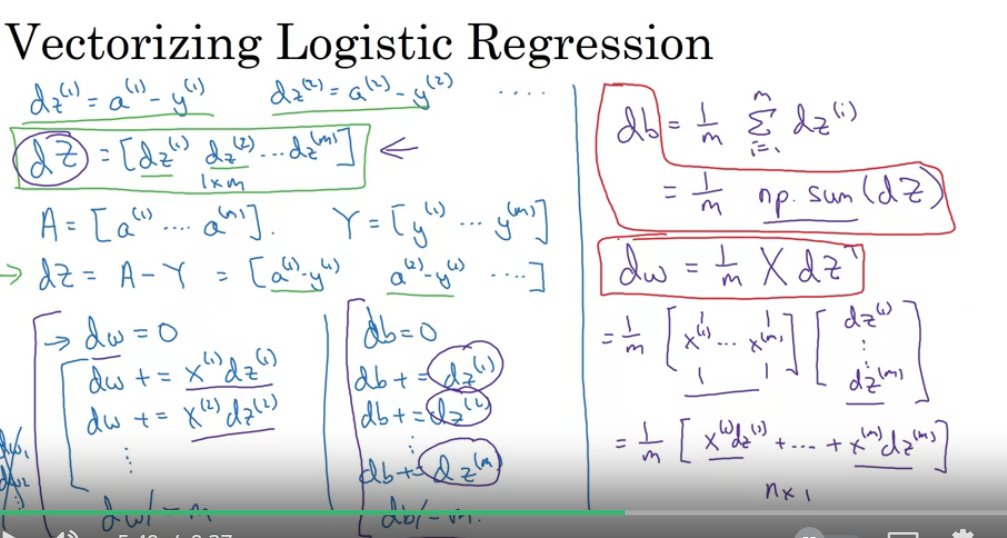 Vectorizing Logistic Regression
dz⁽¹⁾ = a⁽¹⁾ - y⁽¹⁾ dz⁽²⁾ = a⁽²⁾ - y⁽²⁾ ....
dZ = [dz⁽¹⁾ dz⁽²⁾ ... dz⁽ᵐ⁾] ←
1×m
A = [a⁽¹⁾ .... a⁽ᵐ⁾]. Y = [y⁽¹⁾ ... y⁽ᵐ⁾]
→ dZ = A - Y = [a⁽¹⁾-y⁽¹⁾ a⁽²⁾-y⁽²⁾ ....]
→ dw = 0
dw += x⁽¹⁾dz⁽¹⁾
dw += x⁽²⁾dz⁽²⁾
⋮
dw /= m
dw₁
dw₂
db = 0
db += dz⁽¹⁾
db += dz⁽²⁾
⋮
db += dz⁽ᵐ⁾
db /= m.
db = 1/m Σ dz⁽ⁱ⁾
m
i=1
= 1/m np.sum(dZ)
dw = 1/m X dzᵀ
= 1/m [x⁽¹⁾ ... x⁽ᵐ⁾] [dz⁽¹⁾ ⋮ dz⁽ᵐ⁾]
= 1/m [x⁽¹⁾dz⁽¹⁾ + ... + x⁽ᵐ⁾dz⁽ᵐ⁾]
n×1